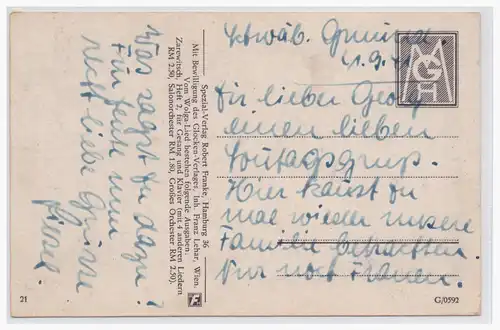 Schwäb. Gmünd
21.9.
Dir lieber Georg
einen lieben
Sonntagsgruß.
Hier kannst du
mal wieder unsere
Familie betrachten
Nur noch Frauen.
Was sagst du dazu?
Für heute nun
recht liebe Grüsse
Liesel.
Spezial-Verlag Robert Franke, Hamburg 36
Mit Bewilligung des Glocken-Verlages, Inh. Franz Lehar, Wien.
Vom Wolga-Lied bestehen folgende Ausgaben:
Zarewitsch, Heft 2, für Gesang und Klavier (mit 4 anderen Liedern
RM 2.50, Salonorchester RM 1.80, Großes Orchester RM 2.50).
21
G/0592